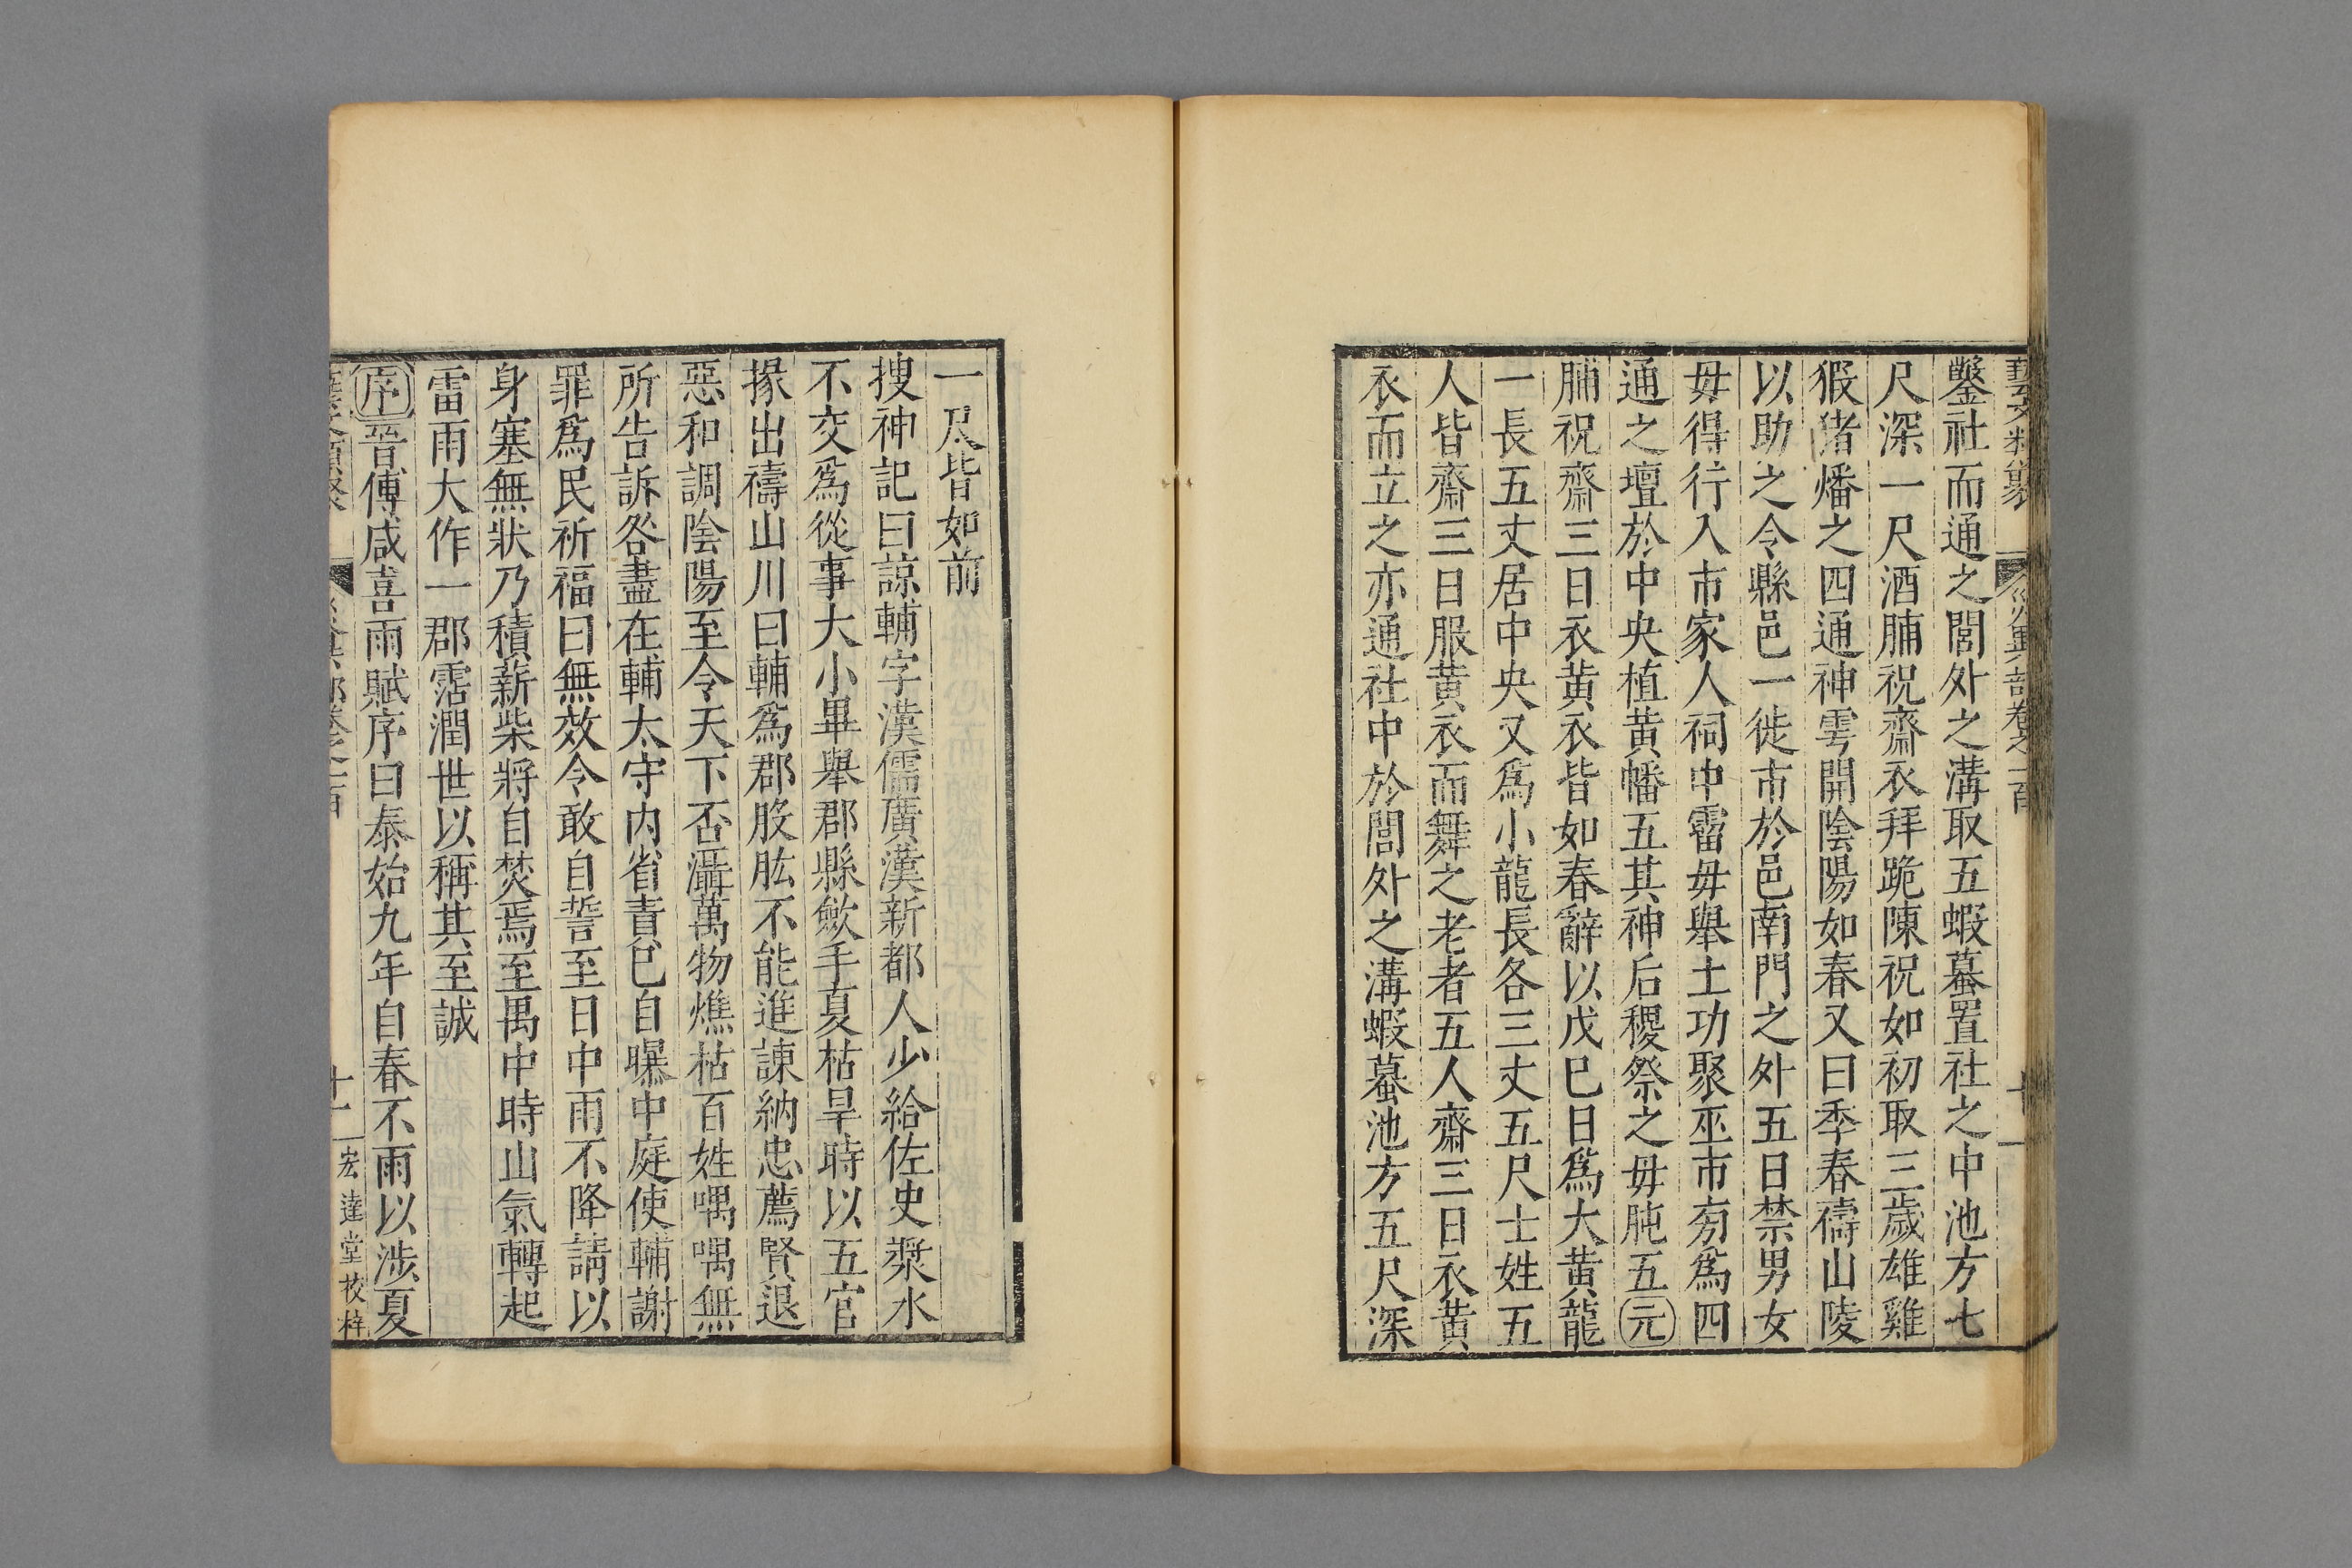 藝文類聚
災異部卷之一百
鑿社而通之閭外之溝取五蝦蟇置社之中池方七
尺深一尺酒脯祝齋衣拜跪陳祝如初取三歲雄雞
猳猪燔之四通神雩開陰陽如春又曰季春禱山陵
以助之令縣邑一徙市於邑南門之外五日禁男女
毋得行入市家人祠中霤毋舉土功聚巫市㫄爲四
通之壇於中央植黃幡五其神后稷祭之毋肫五元
脯祝齋三日衣黃衣皆如春辭以戊巳日爲大黃龍
一長五丈居中央又爲小龍長各三丈五尺士姓五
人皆齋三日服黃衣而舞之老者五人齋三日衣黃
衣而立之亦通社中於閭外之溝蝦蟇池方五尺深
一尺皆如前
搜神記曰諒輔字漢儒廣漢新都人少給佐史漿水
不交爲從事大小畢舉郡縣歛手夏枯旱時以五官
掾出禱山川曰輔爲郡股肱不能進諫納忠薦賢退
惡和調陰陽至令天下否灄萬物燋枯百姓喁喁無
所告訴咎盡在輔太守內省責巳自曝中庭使輔謝
罪爲民祈福曰無效令敢自誓至日中雨不降請以
身塞無狀乃積薪柴將自焚焉至禺中時山氣轉起
雷雨大作一郡霑潤世以稱其至誠
序晉傅咸喜雨賦序曰泰始九年自春不雨以涉夏
十一
宏達堂校梓